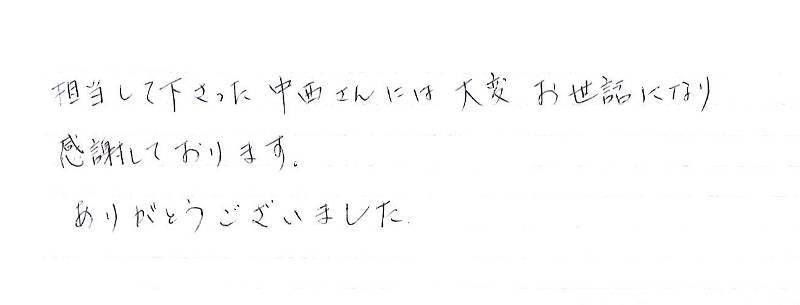 担当して下さった 中西さんには 大変 お世話になり
感謝しております。
ありがとうございました.